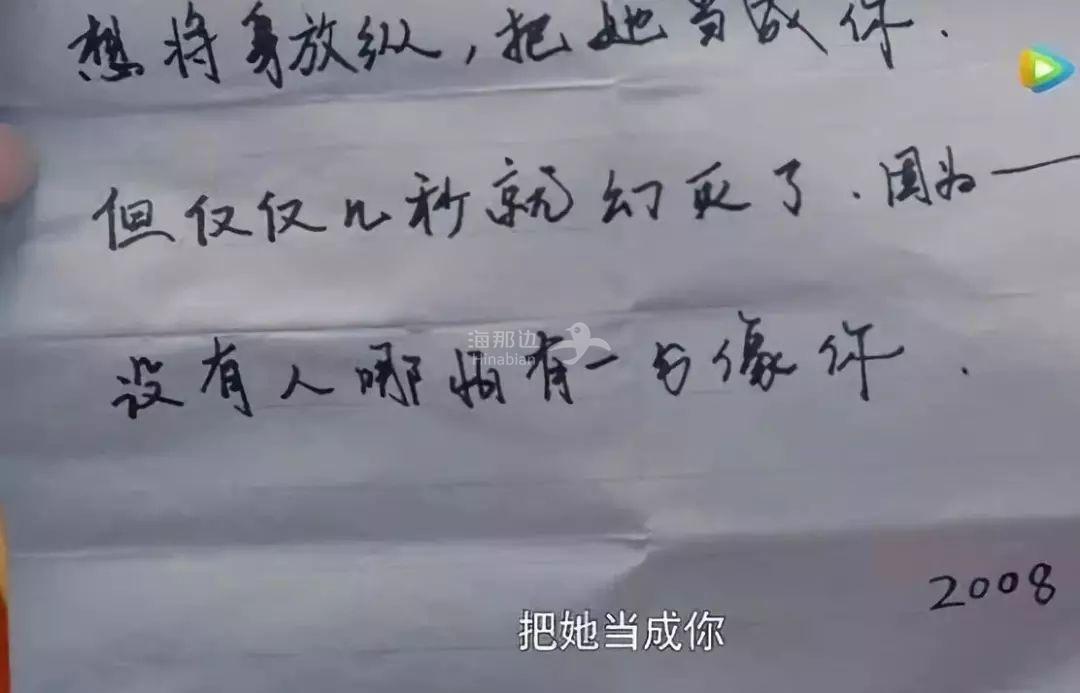 想将身放纵，把她当成你.
但仅仅几秒就幻灭了.因为一
没有人哪怕有一与像你.
海那边
Hinabian
2008
把她当成你